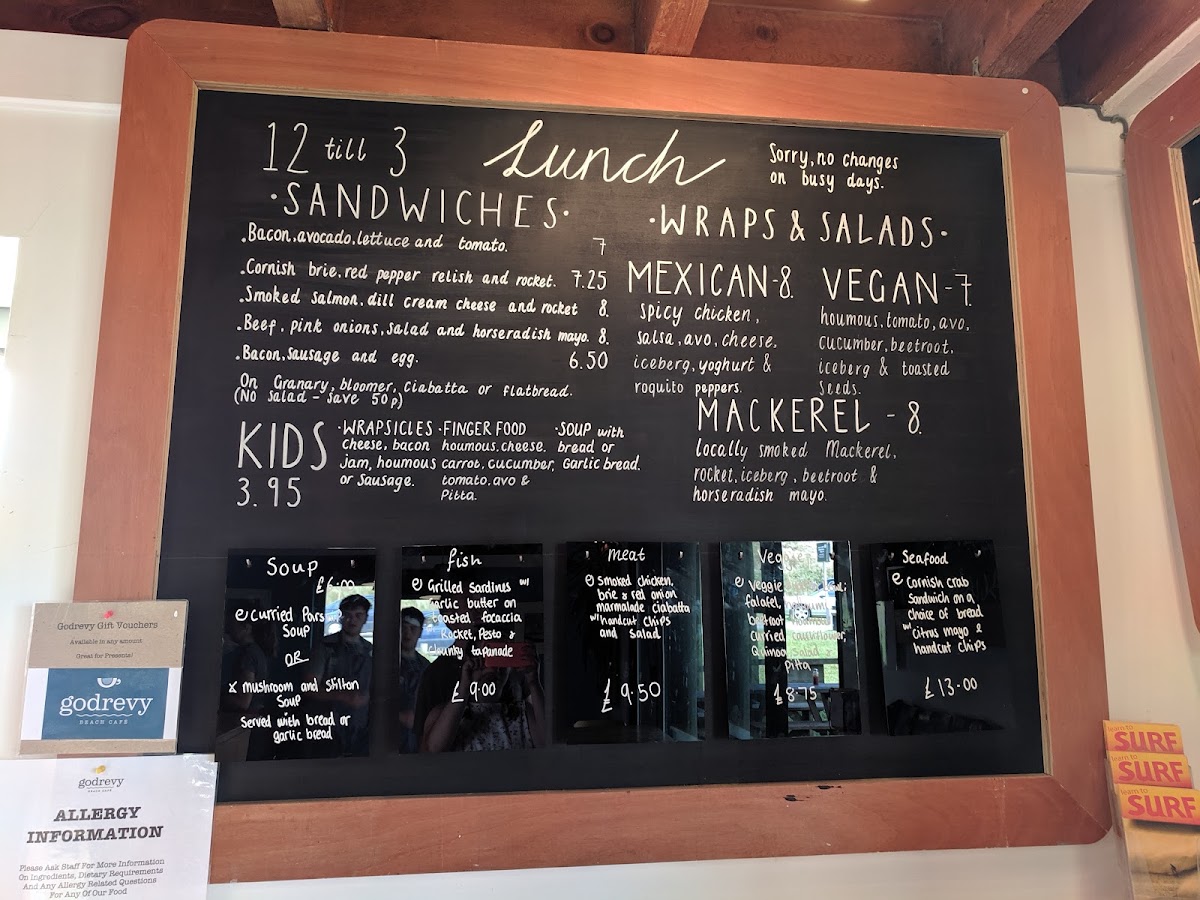 12 till 3
Lunch
Sorry, no changes
on busy days.
·SANDWICHES·
.Bacon, avocado, lettuce and tomato. 7
.Cornish brie, red pepper relish and rocket. 7.25
.Smoked salmon, dill cream cheese and rocket 8.
.Beef, pink onions, salad and horseradish mayo. 8.
.Bacon, sausage and egg. 6.50
On Granary, bloomer, ciabatta or flatbread.
(No salad - save 50p)
·WRAPS & SALADS·
MEXICAN-8.
spicy chicken,
salsa, avo, cheese,
iceberg, yoghurt &
roquito peppers.
VEGAN-7.
houmous, tomato, avo,
cucumber, beetroot,
iceberg & toasted
seeds.
MACKEREL - 8.
locally smoked Mackerel,
rocket, iceberg, beetroot &
horseradish mayo.
KIDS
3.95
·WRAPSICLES
cheese, bacon
jam, houmous
or sausage.
·FINGER FOOD
houmous, cheese,
carrot, cucumber,
tomato, avo &
Pitta.
·SOUP with
bread or
Garlic bread.
Soup
£6.00
curried Parsnip
Soup
OR
mushroom and Stilton
Soup
Served with bread or
garlic bread
fish
Grilled Sardines w/
garlic butter on
toasted focaccia
Rocket, Pesto &
Chunky tapanade
£9.00
meat
Smoked chicken,
brie & red onion
marmalade ciabatta
w/ handcut chips
and salad
£9.50
Veggie
Veggie
falafel,
beetroot houmous
curried cauliflower,
Quinoa Salad &
Pitta
£8.75
Seafood
Cornish crab
Sandwich on a
choice of bread
w/ citrus mayo &
handcut chips
£13.00
Godrevy Gift Vouchers
Available in any amount
Great for Presents!
godrevy
BEACH CAFÉ
godrevy
BEACH CAFÉ
ALLERGY
INFORMATION
Please Ask Staff For More Information
On Ingredients, Dietary Requirements
And Any Allergy Related Questions
For Any Of Our Food
learn to
SURF
learn to
SURF
learn to
SURF